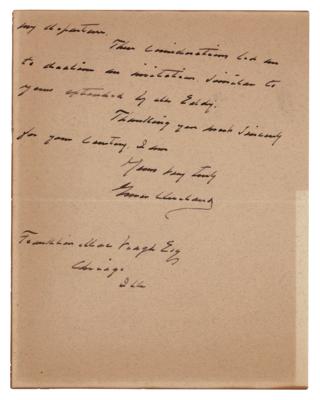 my departure.
These considerations led me
to decline an invitation similar to
yours extended by Mr Eddy.
Thanking you most sincerely
for your courtesy, I am
Yours very truly
Grover Cleveland
Franklin MacVeagh Esq
Chicago
Ills